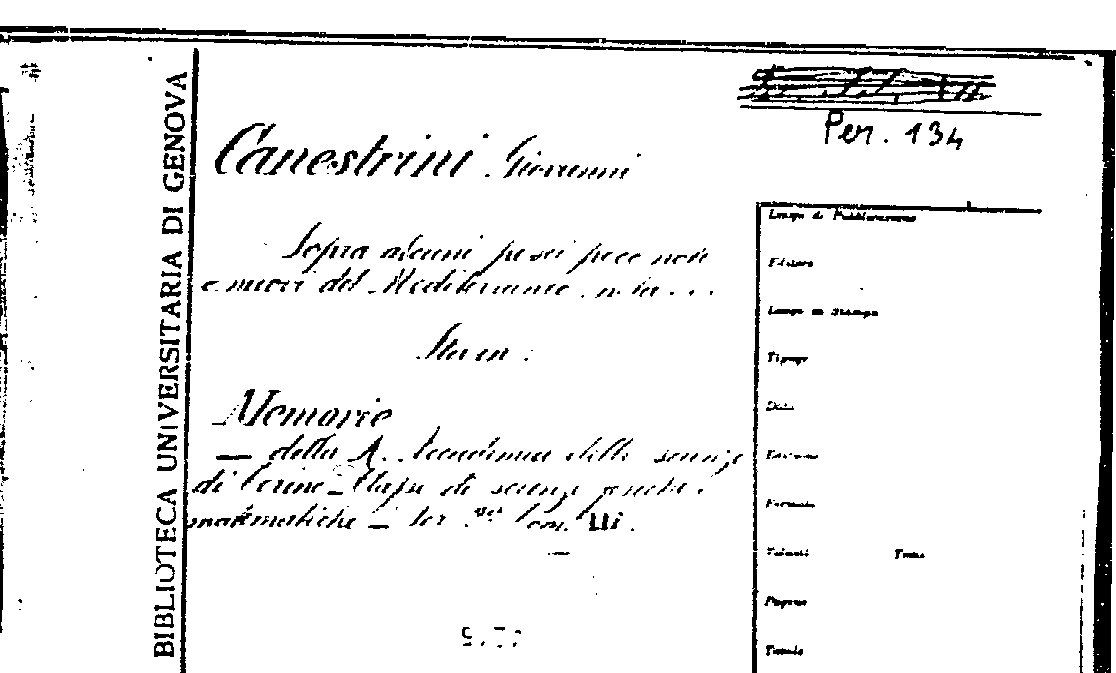 BIBLIOTECA UNIVERSITARIA DI GENOVA
Per. 134
Canestrini Giovanni
Sopra alcuni pesci poco noti
e nuovi del Mediterraneo. nota...
Sta in:
Memorie
— della R. Accademia delle scienze
di Torino – Classe di scienze fisiche e
matematiche – Ser. Tom. III.
Luogo di Pubblicazione
Editore
Luogo di Stampa
Tipogr.
Data
Edizione
Formato
Volumi Tomo
Pagine
Tavole